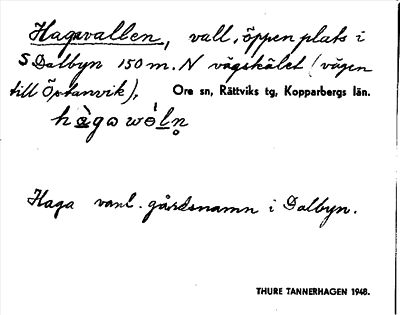 Hagavallen, vall, öppen plats i
S Dalbyn 150 m. N vägskälet (vägen
till Östanvik), Ore sn, Rättviks tg, Kopparbergs län.
Haga vanl. gårdsnamn i Dalbyn.
THURE TANNERHAGEN 1948.